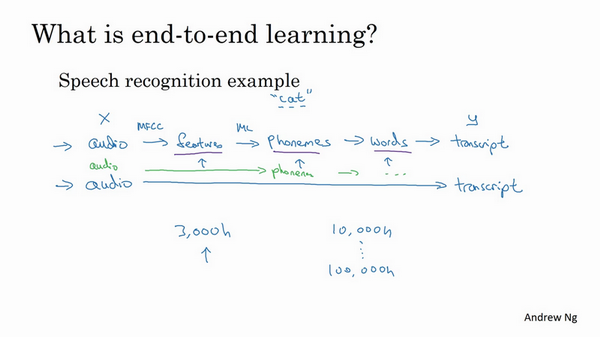 What is end-to-end learning?
Speech recognition example
"cat"
X MFCC ML y
→ audio → features → phonemes → words → transcript
audio → phonems → ...
→ audio → transcript
3,000h 10,000h
100,000h
Andrew Ng